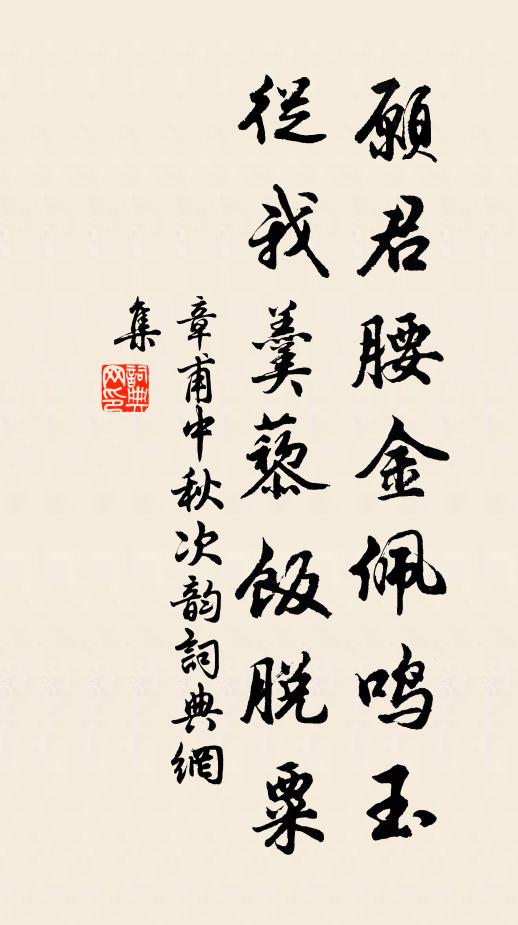 願君腰金佩鳴玉
從我羹藜飯脱粟
章甫中秋次韵詞典網
集
詞典網印